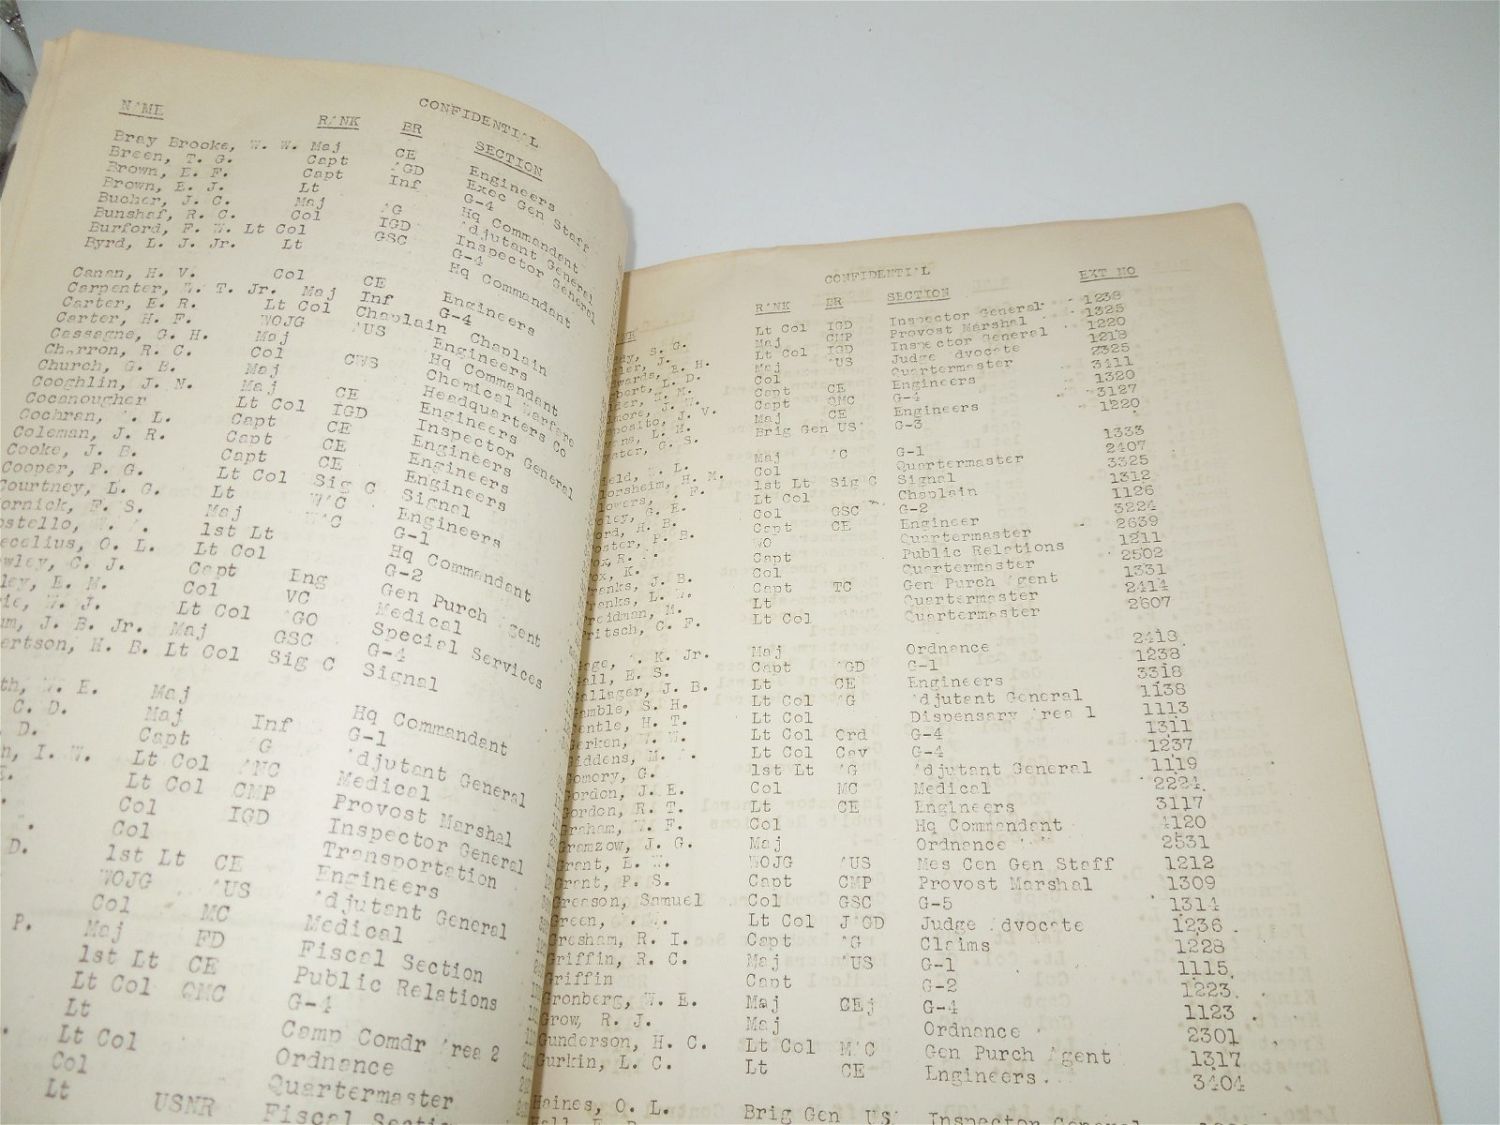 CONFIDENTI'L
N'ME R'NK BR SECTION
Bray Brooke, W. W. Maj CE Engineers
Breen, T. G. Capt 'GD Exec Gen Staff
Brown, E. F. Capt Inf G-4
Brown, E. J. Lt Hq Commandant
Bucher, J. C. Maj 'G 'djutant General
Bunshaf, R. C. Col IGD Inspector General
Burford, F. W. Lt Col GSC G-4
Byrd, L. J. Jr. Lt Hq Commandant
Canan, H. V. Col CE Engineers
Carpenter, W. T. Jr. Maj Inf G-4
Carter, E. R. Lt Col Chaplain Chaplain
Carter, H. F. WOJG 'US Engineers
Cassagne, G. H. Maj Hq Commandant
Charron, R. C. Col CWS Chemical Warfare
Church, G. B. Maj Headquarters Co
Cooghlin, J. N. Maj CE Engineers
Cocanougher Lt Col IGD Inspector General
Cochran, '. L. Capt CE Engineers
Coleman, J. R. Capt CE Engineers
Cooke, J. B. Capt CE Engineers
Cooper, P. G. Lt Col Sig C Signal
Courtney, L. G. Lt W'C Engineers
ornick, F. S. Maj W'C G-1
ostello, 1st Lt Hq Commandant
ecelius, O. L. Lt Col G-2
wley, C. J. Capt Eng Gen Purch 'gent
ley, E. M. Col VC Medical
ie, W. J. Lt Col 'GO Special Services
um, J. B. Jr. Maj GSC G-4
ertson, H. B. Lt Col Sig C Signal
th, W. E. Maj Hq Commandant
C. D. Maj Inf G-1
D. Capt G 'djutant General
n, I. W. Lt Col 'NC Medical
Lt Col CMP Provost Marshal
Col IGD Inspector General
Col Transportation
D. 1st Lt CE Engineers
WOJG 'US 'djutant General
Col MC Medical
P. Maj FD Fiscal Section
1st Lt CE Public Relations
Lt Col QMC G-4
Lt Camp Comdr 'rea 2
Lt Col Ordnance
Col Quartermaster
Lt USNR Fiscal Secti
CONFIDENTI'L
R'NK BR SECTION EXT NO
dy, S. G. Lt Col IGD Inspector General 1238
ler, J. Maj CMP Provost Marshal 1325
wards, R. H. Lt Col IGD Inspector General 1220
bert, L. D. Maj 'US Judge 'dvocate 1213
lder, H. M. Col Quartermaster 2325
lmore, J. W. Capt CE Engineers 3411
posito, J. V. Capt QMC G-4 1320
ans, L. H. Maj CE Engineers 3127
ster, G. S. Brig Gen US' G-3 1220
ield, W. L. Maj 'C G-1 1333
lorsheim, H. M. Col Quartermaster 2407
lowers, . F. 1st Lt Sig C Signal 3325
oley, G. E. Lt Col Chaplain 1312
ord, H. B. Col GSC G-2 1126
oster, P. B. Capt CE Engineer 3224
ox, R. WO Quartermaster 2639
ox, K. Capt Public Relations 1211
ranks, J. B. Col Quartermaster 2502
ranks, L. W. Capt TC Gen Purch 'gent 1331
reidman, M. Lt Quartermaster 2414
ritsch, C. F. Lt Col Quartermaster 2607
age, '. K. Jr. Maj Ordnance 2413
all, E. S. Capt 'GD G-1 1238
allager, J. B. Lt CE Engineers 3318
amble, S. H. Lt Col 'G 'djutant General 1138
entle, H. T. Lt Col Dispensary 'rea 1 1113
erken, W. W. Lt Col Ord G-4 1311
iddens, M. '. Lt Col Cav G-4 1237
omory, G. 1st Lt 'G 'djutant General 1119
ordon, J. E. Col MC Medical 2224
ordon, R. T. Lt CE Engineers 3117
raham, W. F. Col Hq Commandant 4120
ramzow, J. G. Maj Ordnance 2531
Grant, E. W. WOJG 'US Mes Cen Gen Staff 1212
Grant, P. S. Capt CMP Provost Marshal 1309
Greason, Samuel Col GSC G-5 1314
Green, '. W. Lt Col J'GD Judge 'dvocate 1236
Gresham, R. I. Capt 'G Claims 1228
Griffin, R. C. Maj 'US G-1 1115
Griffin Capt G-2 1223
Gronberg, W. E. Maj CEj G-4 1123
Grow, R. J. Maj Ordnance 2301
Gunderson, H. C. Lt Col M'C Gen Purch 'gent 1317
Gurkin, L. C. Lt CE Engineers 3404
Haines, O. L. Brig Gen US' Inspector General